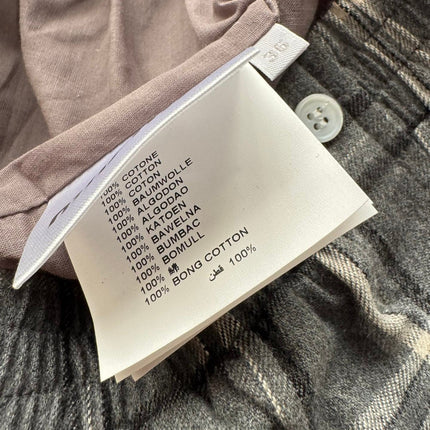 36
100% COTONE
100% COTTON
100% COTON
100% BAUMWOLLE
100% ALGODON
100% ALGODAO
100% KATOEN
100% BAWELNA
100% BUMBAC
100% BOMULL
100%
100% BONG COTTON
قطن 100%